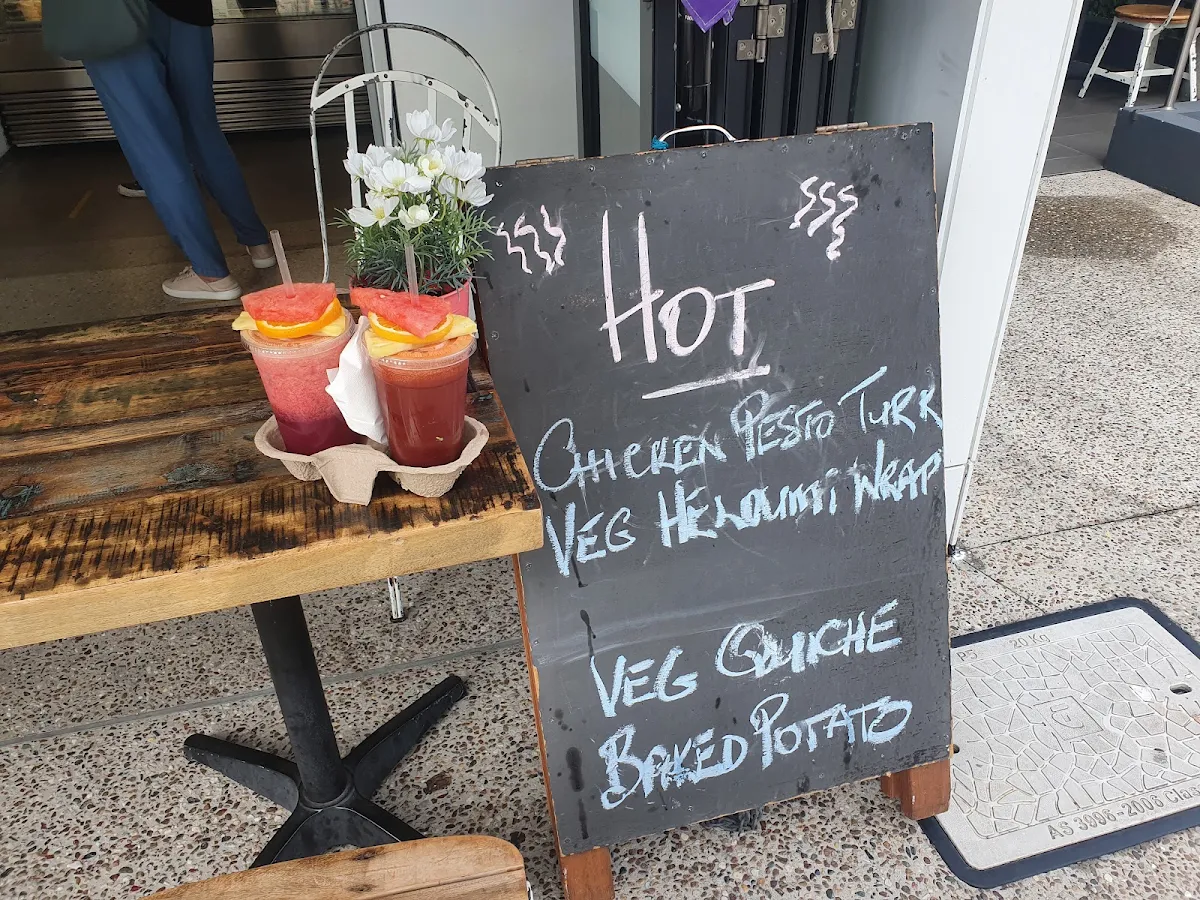 HOT
CHICKEN PESTO TURK
VEG HELOUMI WRAP
VEG QUICHE
BAKED POTATO
20 Kg
AS 3996-2006 Cla